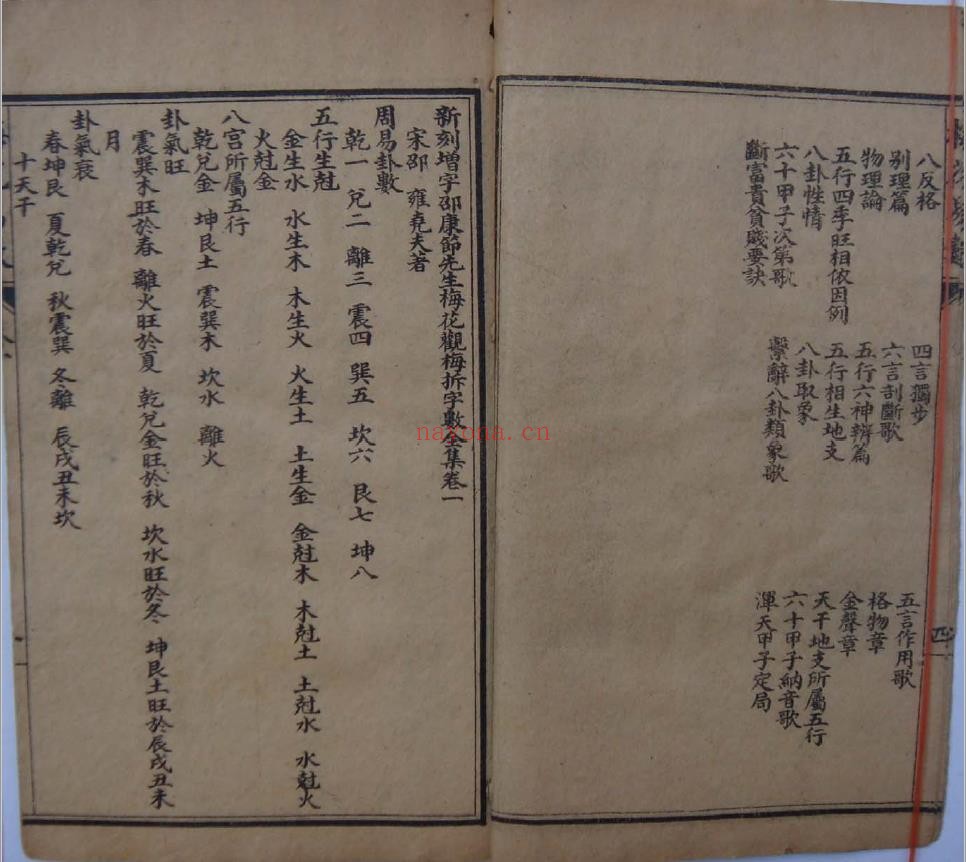 八反格
四言獨步
五言作用歌
别理篇
六言剖斷歌
格物章
物理論
五行六神辨篇
金聲章
五行四季旺相依因例
五行相生地支
天干地支所屬五行
八卦性情
八卦取象
六十甲子納音歌
六十甲子次第歌
繫辭八卦類象歌
渾天甲子定局
斷富貴貧賤要訣
四
新刻增字邵康節先生梅花觀梅拆字數全集卷一
宋邵 雍堯夫著
周易卦數
乾一 兌二 離三 震四 巽五 坎六 艮七 坤八
五行生尅
金生水 水生木 木生火 火生土 土生金 金尅木 木尅土 土尅水 水尅火
火尅金
八宮所屬五行
乾兌金 坤艮土 震巽木 坎水 離火
卦氣旺
震巽木旺於春 離火旺於夏 乾兌金旺於秋 坎水旺於冬 坤艮土旺於辰戌丑未
月
卦氣衰
春坤艮 夏乾兌 秋震巽 冬離 辰戌丑未坎
十天干
nayona.cn